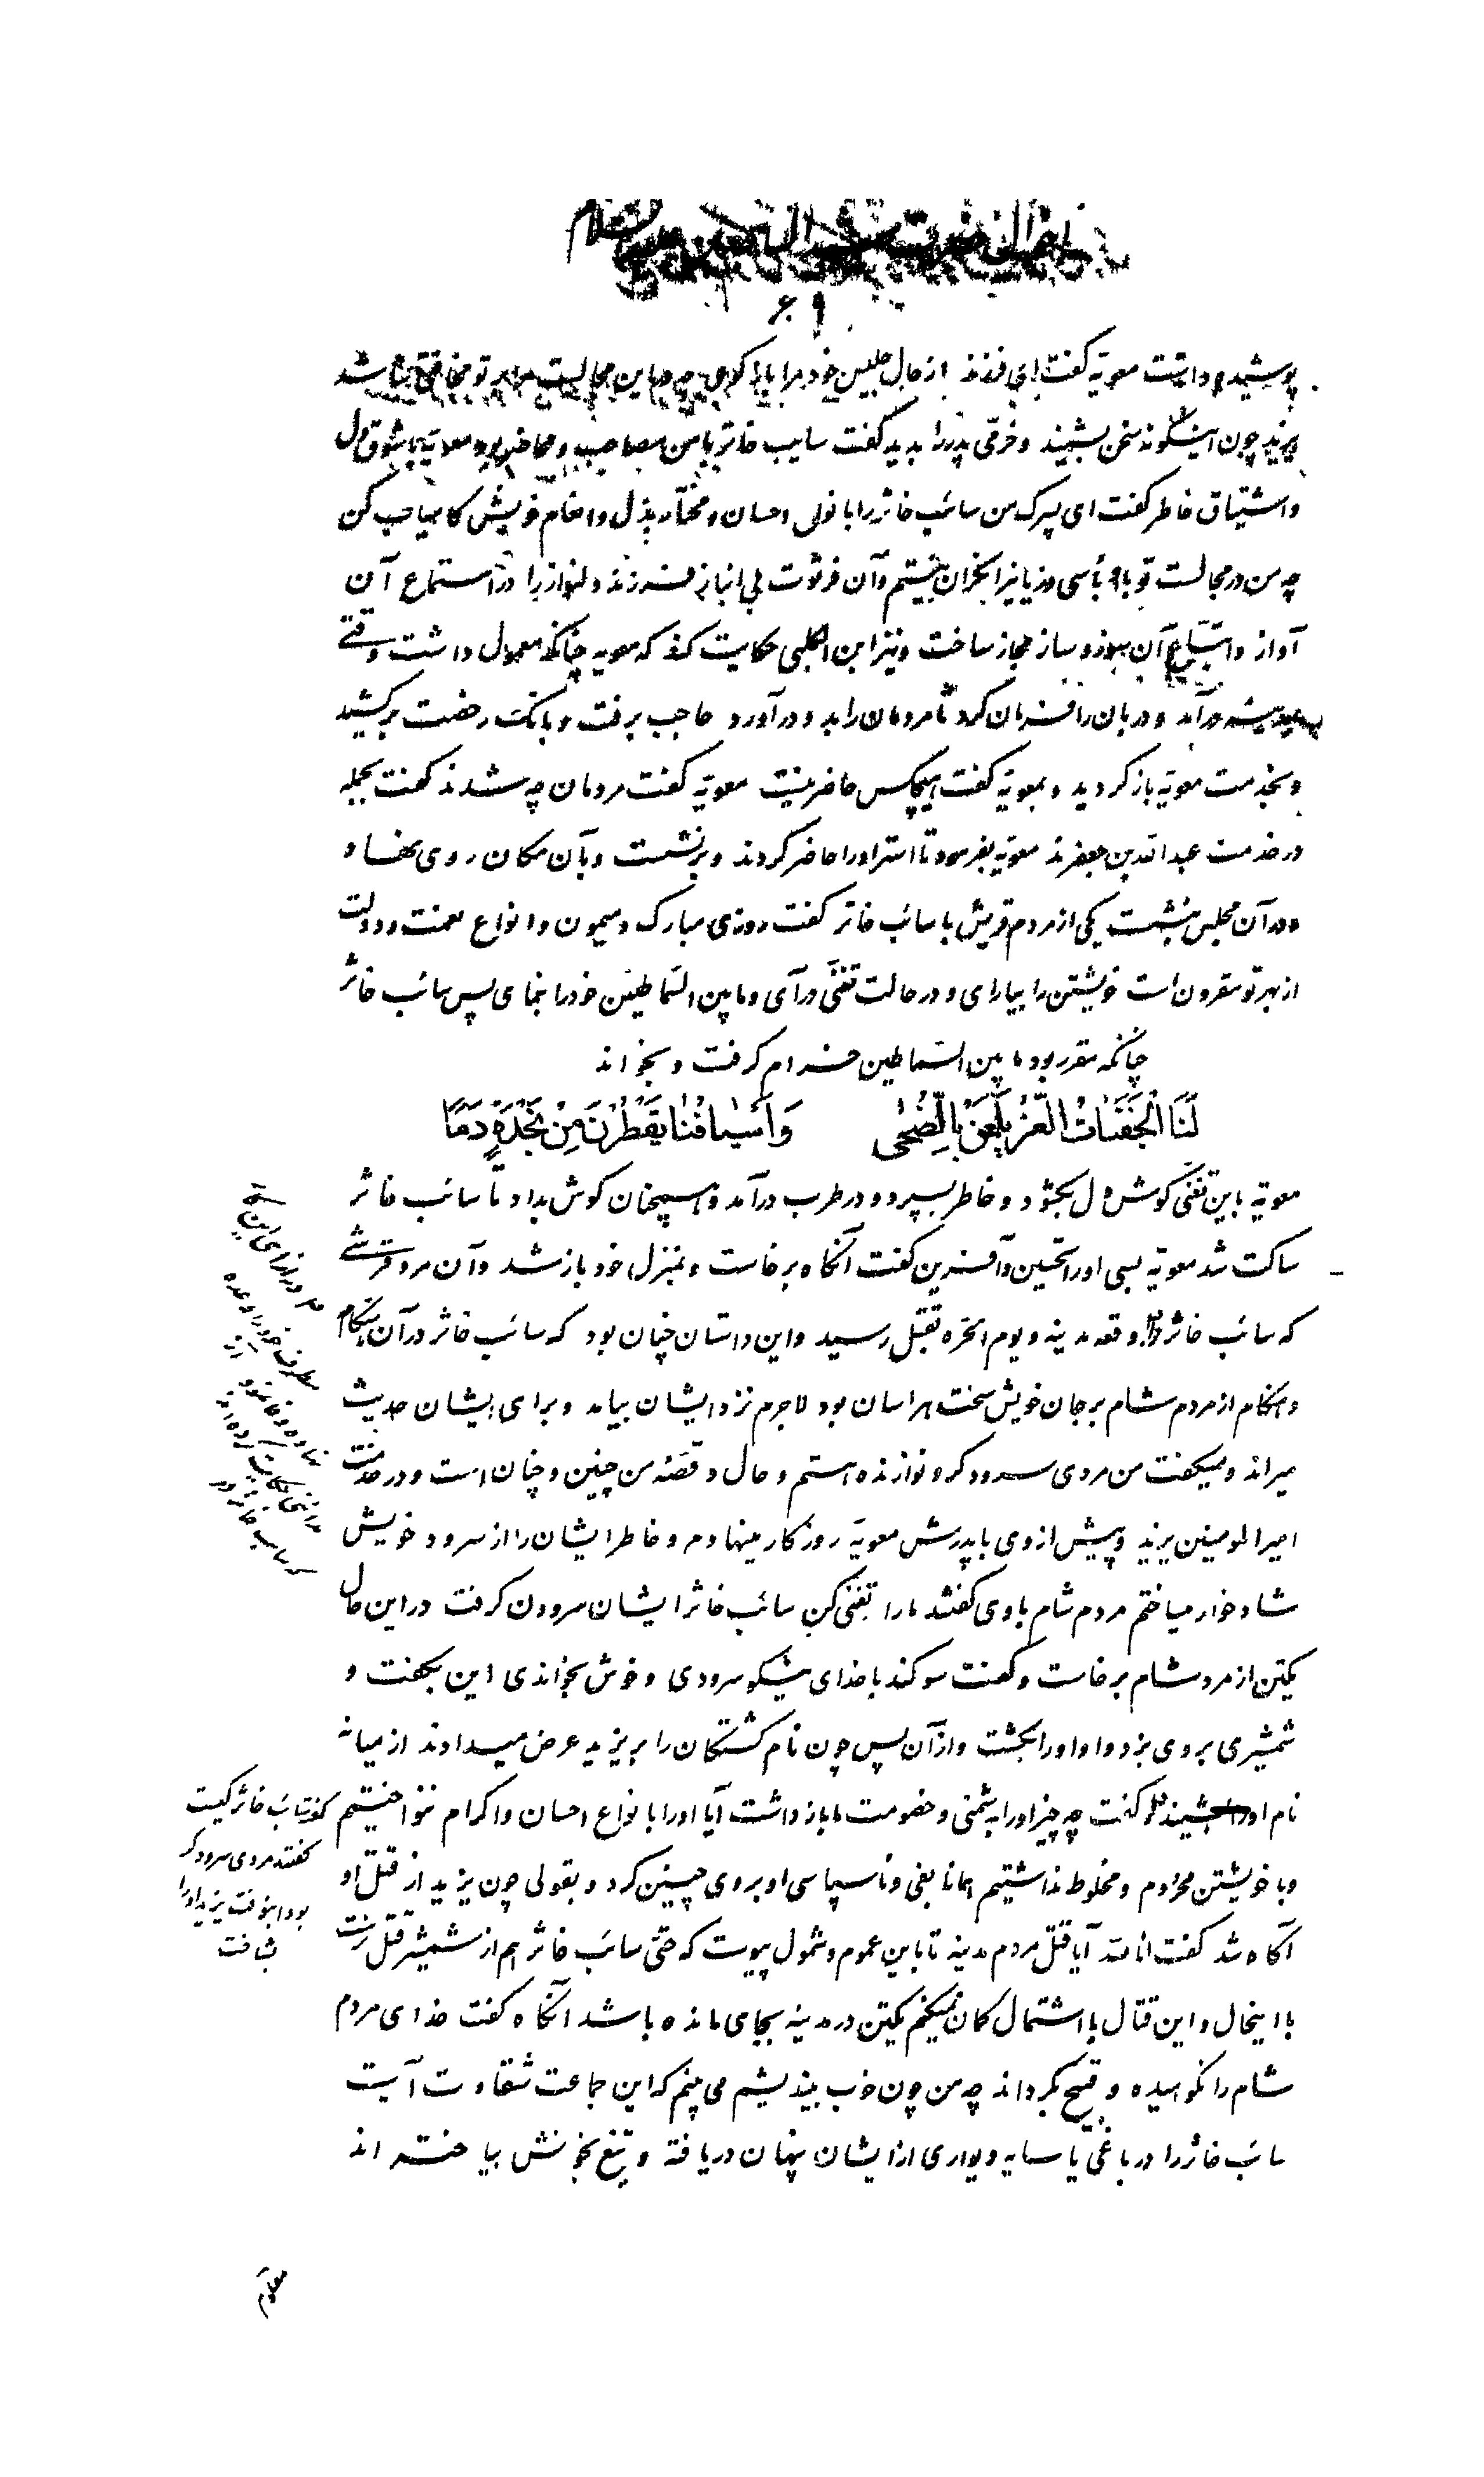 ۶۹
پوشیده داشت معویة گفت ای فرزند از حال جلیس خود مرا باز گوی چه در این مجالست مرا بر تو مخالفتی نباشد
یزید چون اینگونه سخن بشنید و خرّمی پدر را بدید گفت سایب خاثر با من مصاحب و محاضر بود معویة با شوق دل
و اشتیاق خاطر گفت ای پسرک من سائب خاثر را با نوای احسان و بذل و انعام خویش کامیاب کن
چه من در مجالست تو با او بأسی و زیانی نگران نیستم و آن فرتوت بی انباز فرزند دلنواز را در استماع آن
آواز و اتباع آن سوز و ساز مجاز ساخت و نیز ابن الکلبی حکایت کند که معویه چنانکه معمول داشت وقتی
بمدینه درآمد و دربان را فرمان کرد تا مردمان را بدو درآورد حاجب برفت و بانک رخصت برکشید
و بخدمت معویة باز گردید و بمعویة گفت هیچکس حاضر نیست معویة گفت مردمان چه شدند گفت بجمله
در خدمت عبدالله بن جعفرند معویة بفرمود تا استر او را حاضر کردند و برنشست و بآن مکان روی نهاد و
در آن مجلس بنشست یکی از مردم قریش با سائب خاثر گفت روزی مبارک و میمون و انواع نعمت و دولت
از بهر تو مقرون است خویشتن را بیارای و در حالت تغنّی درآی و ما بین السّماطین خود را بنمای پس سائب خاثر
چنانکه مقرر بود ما بین السّماطین خرام گرفت و بخواند
لَنَا الْجَفَنَاتُ الْغُرُّ يَلْمَعْنَ بِالضُّحٰى وَأَسْيٰافُنٰا يَقْطُرْنَ مِنْ نَجْدَةٍ دَمًا
معویة باین تغنّی گوش دل بگشود و خاطر بسپرد و در طرب درآمد و همچنان گوش بداد تا سائب خاثر
ساکت شد معویة بسی او را تحسین و آفرین گفت آنگاه برخاست و بمنزل خود باز شد و آن مرد قرشی
که سائب خاثر در وقعه مدینه و یوم الحرّه بقتل رسید و این داستان چنان بود که سائب خاثر در آن هنگام
و هنگام از مردم شام بر جان خویش سخت هراسان بود لاجرم نزد ایشان بیامد و برای ایشان حدیث
میراند و میگفت من مردی سرودگر و نوازنده هستم و حال و قصّه من چنین و چنان است و در خدمت
امیرالمومنین یزید و پیش از وی با پدرش معویة روزگار مینهادم و خاطر ایشان را از سرود خویش
شادخوار میساختم مردم شام با وی گفتند ما را تغنّی کن سائب خاثر ایشان سرودن گرفت در این حال
یکتن از مردم شام برخاست و گفت سوگند با خدای نیکو سرودی و خوش بخواندی این بگفت و
شمشیری بر وی بزد و او را بکشت و از آن پس چون نام کشتگان را بر یزید عرض میدادند از میانه
نام او را بشنید گفت چه چیز او را به دشمنی و خصومت ما باز داشت آیا او را با انواع احسان و اکرام ننواختیم
و با خویشتن محرم و مخلوط نداشتیم همانا بغی و ناسپاسی او بر وی چنین کرد و بقولی چون یزید از قتل او
آگاه شد گفت انا لله آیا قتل مردم مدینه تا باین عموم و شمول پیوست که حتّی سائب خاثر هم از شمشیر قتل نرست
با اینحال و این قتال با اشتمال گمان نمیکنم یکتن در مدینه بجای مانده باشد آنگاه گفت خدای مردم
شام را نکوهیده و قبیح گرداند چه من چون خوب بیندیشم می بینم که این جماعت شقاوت آیت
سائب خاثر را در باغی یا سایه دیواری از ایشان پنهان دریافته و تیغ بخونش بیاخته اند
گفت سائب خاثر کیست
گفتند مردی سرودگر
بود اینوقت یزید او را
بشناخت